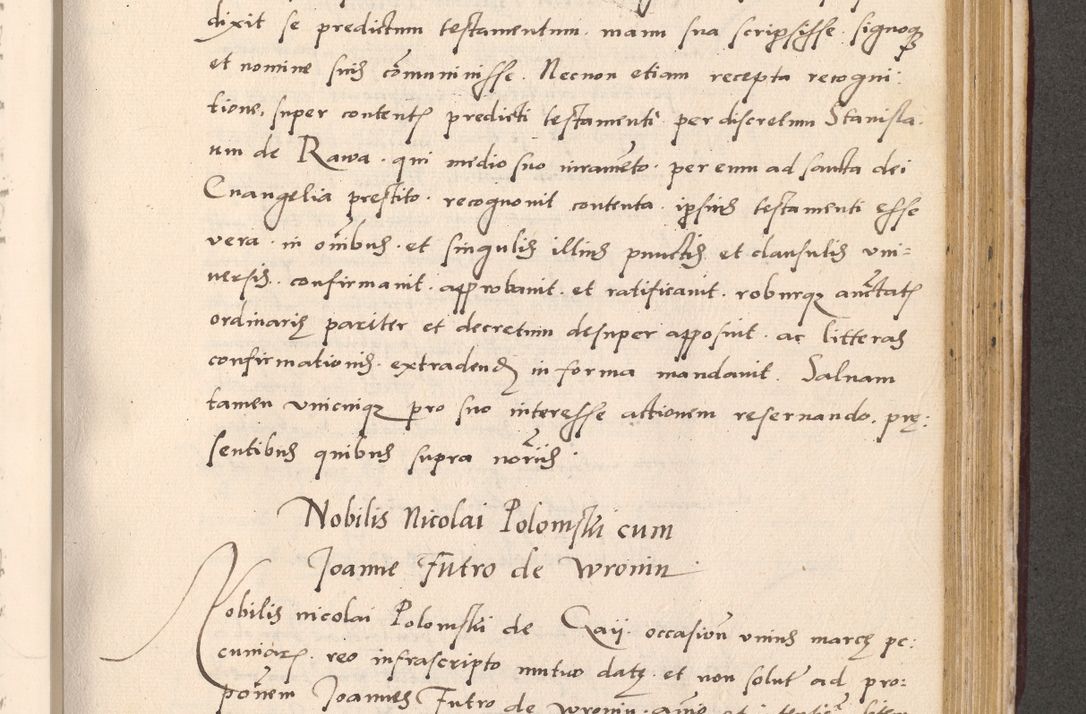 dixit se predictum testamentum · manu sua scripsisse · signoqȝ
et nomine suis cōmuniuisse · Necnon etiam recepta recogni:
tione, super contentis predicti testamenti per discretum Stanisla·
um de Rawa · qui medio suo iuramēto · per eum ad sancta dei
Euangelia prestito · recognouit contenta · ipsius testamenti esse
vera · in oībus · et singulis illius punctis et clausulis vni=
uersis · confirmauit · approbauit · et ratificauit · roburqȝ auctatis
ordinarię pariter et decretum desuper apposuit · ac litteras
confirmationis · extradendas in forma mandauit · Saluam
tamen vnicuiqȝ pro suo interesse actionem reseruando · prę:
sentibus quibus supra nōriis ·
Nobilis Nicolai Polomski cum
Joanne Futro de Wronin ·
Nobilis nicolai Polomski de Gaij · occasioñ vnius marcę pe:
cuniaris · reo infrascripto mutuo datę · et non solut ad pro=
ponem Joannes Futro de Wronin